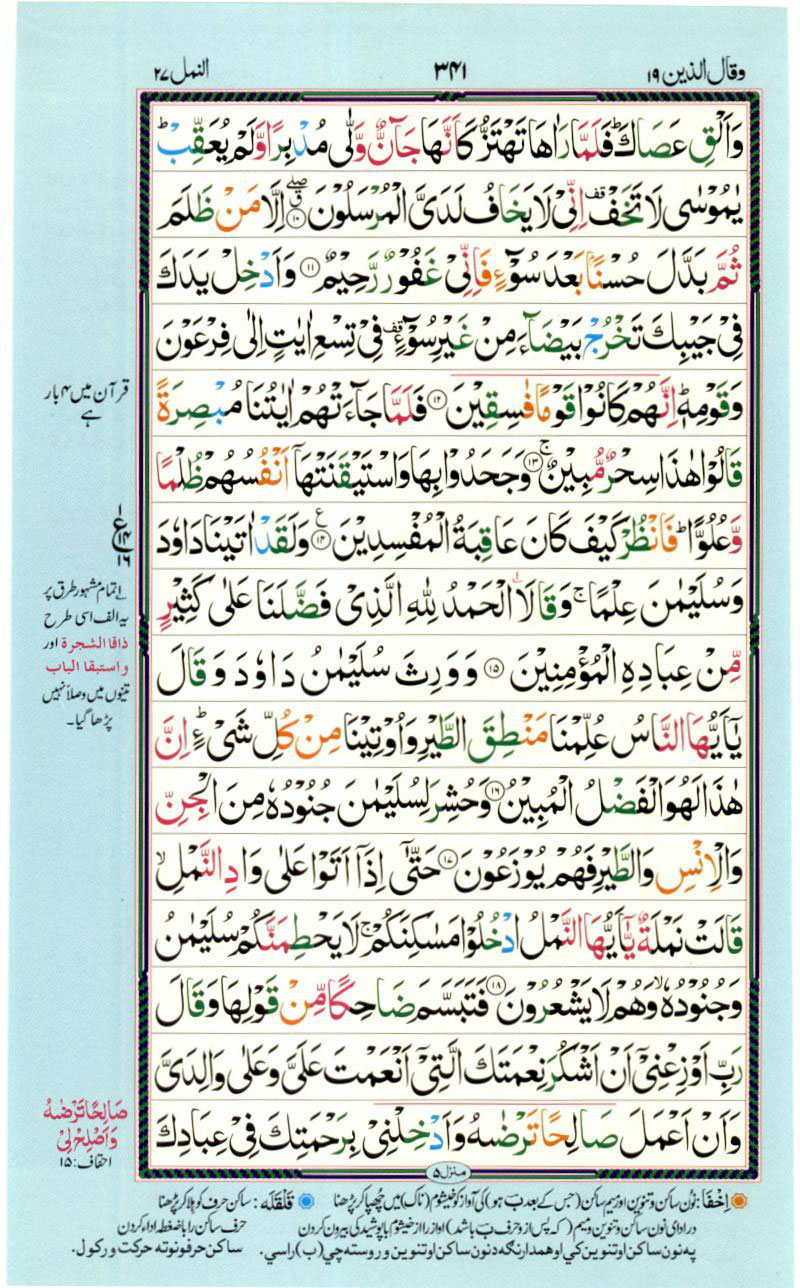 وقال الذین ۱۹
۳۴۱
النمل ۲۷
وَاَلْقِ عَصَاكَ ؕ فَلَمَّا رَاٰهَا تَهْتَزُّ كَاَنَّهَا جَآنٌّ وَّلّٰى مُدْبِرًا وَّلَمْ يُعَقِّبْ ؕ
يٰمُوْسٰى لَا تَخَفْ ۫ اِنِّىْ لَا يَخَافُ لَدَىَّ الْمُرْسَلُوْنَ ۝۱۰ اِلَّا مَنْ ظَلَمَ
ثُمَّ بَدَّلَ حُسْنًۢا بَعْدَ سُوْٓءٍ فَاِنِّىْ غَفُوْرٌ رَّحِيْمٌ ۝۱۱ وَاَدْخِلْ يَدَكَ
فِىْ جَيْبِكَ تَخْرُجْ بَيْضَآءَ مِنْ غَيْرِ سُوْٓءٍ ۫ فِىْ تِسْعِ اٰيٰتٍ اِلٰى فِرْعَوْنَ
وَقَوْمِهٖ ؕ اِنَّهُمْ كَانُوْا قَوْمًا فٰسِقِيْنَ ۝۱۲ فَلَمَّا جَآءَتْهُمْ اٰيٰتُنَا مُبْصِرَةً
قَالُوْا هٰذَا سِحْرٌ مُّبِيْنٌ ۝۱۳ ۚ وَجَحَدُوْا بِهَا وَاسْتَيْقَنَتْهَاۤ اَنْفُسُهُمْ ظُلْمًا
وَّعُلُوًّا ؕ فَانْظُرْ كَيْفَ كَانَ عَاقِبَةُ الْمُفْسِدِيْنَ ۝۱۴ وَلَقَدْ اٰتَيْنَا دَاوٗدَ
وَسُلَيْمٰنَ عِلْمًا ۚ وَقَالَا الْحَمْدُ لِلّٰهِ الَّذِىْ فَضَّلَنَا عَلٰى كَثِيْرٍ
مِّنْ عِبَادِهِ الْمُؤْمِنِيْنَ ۝۱۵ وَوَرِثَ سُلَيْمٰنُ دَاوٗدَ وَقَالَ
يٰۤاَيُّهَا النَّاسُ عُلِّمْنَا مَنْطِقَ الطَّيْرِ وَاُوْتِيْنَا مِنْ كُلِّ شَىْءٍ ؕ اِنَّ
هٰذَا لَهُوَ الْفَضْلُ الْمُبِيْنُ ۝۱۶ وَحُشِرَ لِسُلَيْمٰنَ جُنُوْدُهٗ مِنَ الْجِنِّ
وَالْاِنْسِ وَالطَّيْرِ فَهُمْ يُوْزَعُوْنَ ۝۱۷ حَتّٰۤى اِذَاۤ اَتَوْا عَلٰى وَادِ النَّمْلِ ۙ
قَالَتْ نَمْلَةٌ يّٰۤاَيُّهَا النَّمْلُ ادْخُلُوْا مَسٰكِنَكُمْ ۚ لَا يَحْطِمَنَّكُمْ سُلَيْمٰنُ
وَجُنُوْدُهٗ ۙ وَهُمْ لَا يَشْعُرُوْنَ ۝۱۸ فَتَبَسَّمَ ضَاحِكًا مِّنْ قَوْلِهَا وَقَالَ
رَبِّ اَوْزِعْنِىْۤ اَنْ اَشْكُرَ نِعْمَتَكَ الَّتِىْۤ اَنْعَمْتَ عَلَىَّ وَعَلٰى وَالِدَىَّ
وَاَنْ اَعْمَلَ صَالِحًا تَرْضٰىهُ وَاَدْخِلْنِىْ بِرَحْمَتِكَ فِىْ عِبَادِكَ
قرآن میں ۴ بار
ہے
ع
۱۴
۱۶
تمام مشہور طرق پر
یہ الف اسی طرح
ذاقا الشجرة اور
واستبقا الباب
تینوں میں وصلاً نہیں
پڑھا گیا۔
صَالِحًا تَرْضٰىهُ
وَاَصْلِحْ لِىْ
احقاف: ۱۵
منزل ۵
اِخْفَا: نون ساکن و تنوین اور میم ساکن (جس کے بعد ب ہو) کی آواز کو خیشوم (ناک) میں چھپا کر پڑھنا
قَلْقَلَه: ساکن حرف کو ہلا کر پڑھنا
در ادای نون ساکن و تنوین و میم (که پس از و حرف ب باشد) اواز را از خیشوم با پوشیدگی بیرون کردن
حرف ساکن را با ضغط اداء کردن
په نون ساکن او تنوین کي او همدارنگه د نون ساکن او تنوین وروسته چي (ب) راسي.
ساکن حرفو نو ته حرکت ورکول.